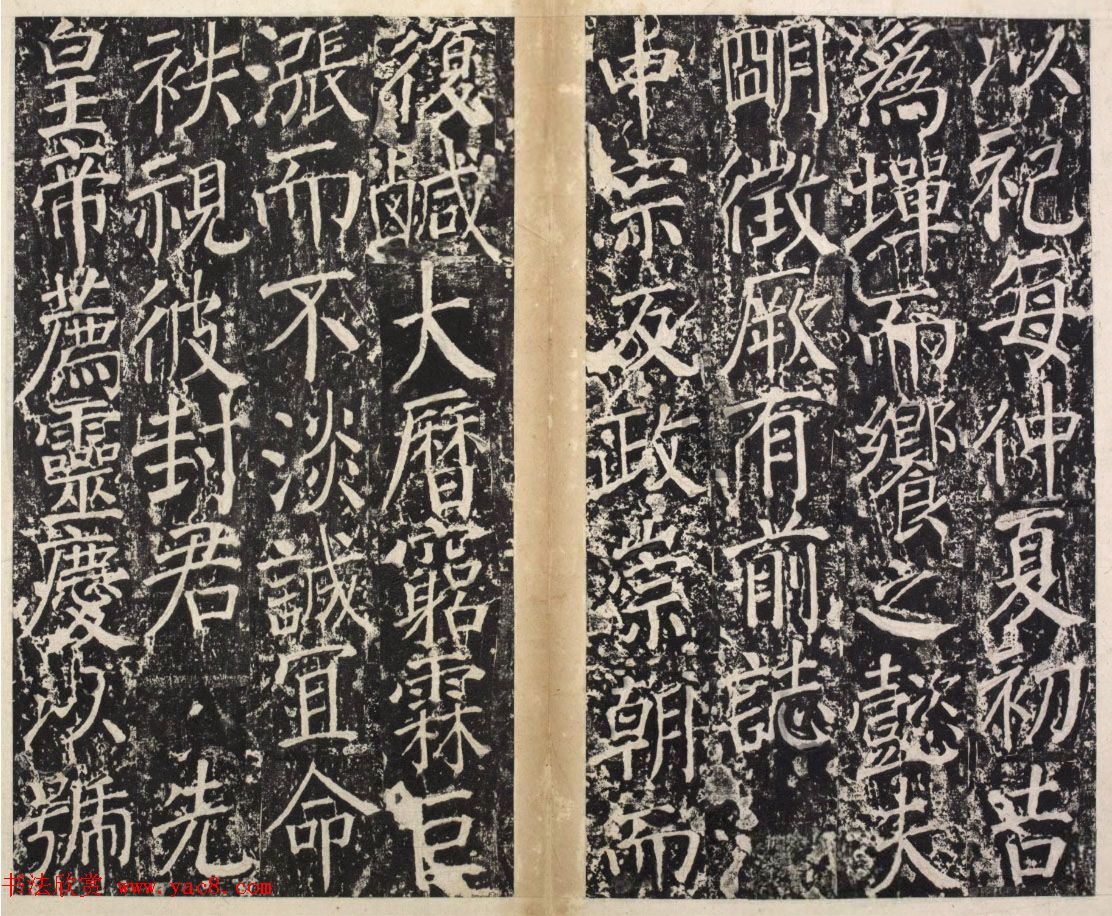 以祀每仲夏初吉
爲墠而饗之懿夫
朙徵厥有前誌
中宗反政崇朝而
復鹹大曆窮霖巨
漲而不淡誠宜命
祑視彼封君先
皇帝薦靈慶以號
书法欣赏 www.yac8.com